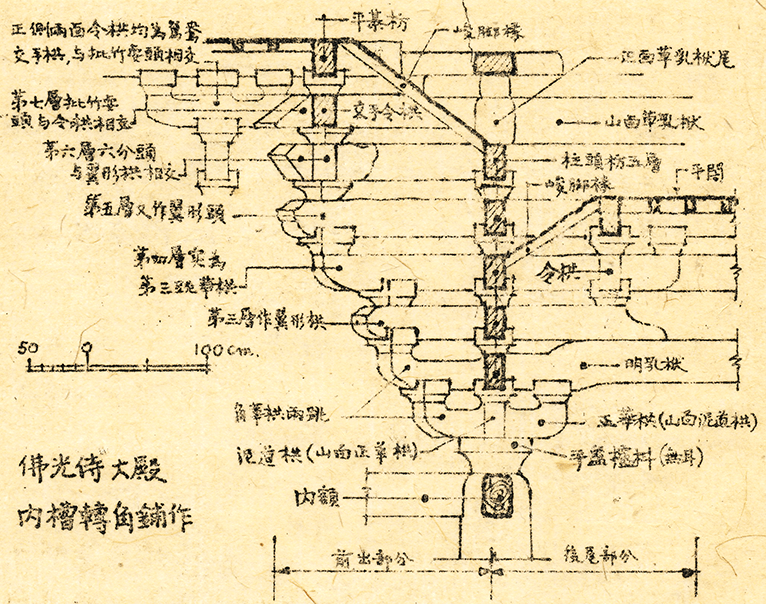 正側兩面令栱均為鴛鴦
交手栱,与批竹耍頭相交
平棊枋
峻脚椽
正面草乳栿尾
第七層批竹耍
頭与令栱相交
交手令栱
山面草乳栿
第六層六分頭
与翼形栱相交
柱頭枋五層
平闇
峻脚椽
第五層又作翼形頭
第四層实為
第三跳華栱
令栱
第三層作翼形栱
50
0
100cm.
明乳栿
角華栱兩跳
正華栱(山面泥道栱)
泥道栱(山面正華栱)
平盖櫨枓(無耳)
佛光寺大殿
内槽轉角鋪作
内額
前出部分
後尾部分